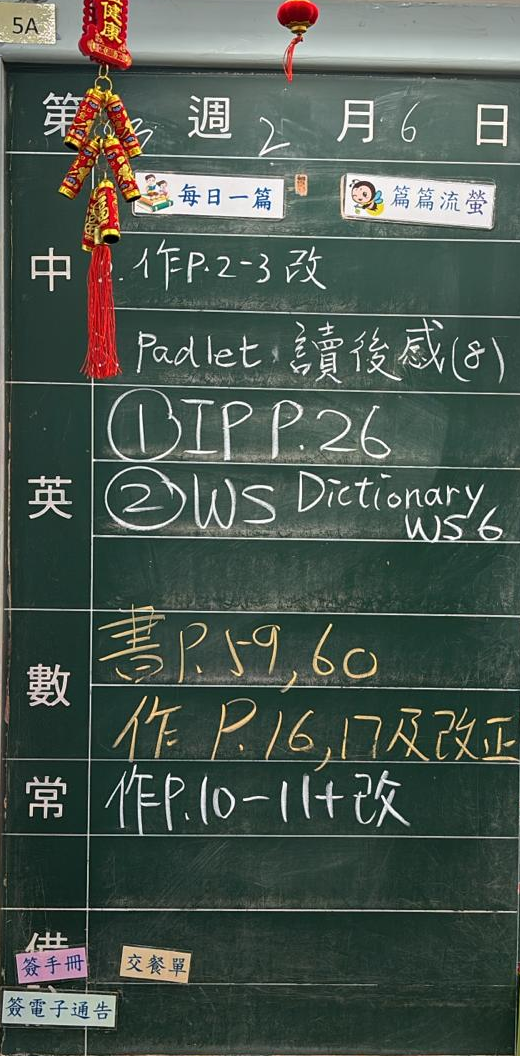 5A
健康
第 3 週 2 月 6 日
每日一篇 篇篇流螢
中 作P.2-3 改
Padlet 讀後感(8)
英 ①IP P.26
②WS Dictionary
WS 6
數 書P.59,60
作 P.16,17及改正
常 作P.10-11+改
備
簽手冊 交餐單
簽電子通告